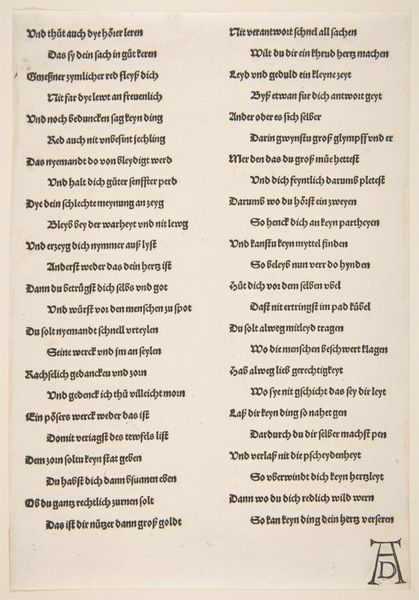 Vnd thůt auch dye hörer leren
Das sy dein sach in gůt keren
Gmeßner zymlicher red fleyß dich
Nit far dye lewt an freuenlich
Vnd noch beduncken sag keyn ding
Red auch nit vnbesint jechling
Das nyemandt do von bleydigt werd
Vnd halt dich gůter senffter perd
Dye dein schlechte meynung an zeyg
Bleyb bey der warheyt vnd nit lewg
Vnd erzeyg dich nymmer auß lyst
Anderst weder das dein hertz ist
Dann du betrůgst dich selbs vnd got
Vnd würst vor den menschen zu spot
Du solt nyemandt schnell vrteylen
Seine werck vnd jm an seylen
Rachselich gedancken vnd zorn
Vnd gedenck ich thů villeicht morn
Ein pösers werck weder das ist
Domit veriagst des tewfels list
Dem zorn soltu keyn stat geben
Du habst dich dann bsunnen eben
Ob du gantz rechtlich zurnen solt
Das ist dir nützer dann groß goldt
Nit verantwort schnel all sachen
Wilt du dir ein khrud hertz machen
Leyd vnd geduld ein kleyne zeyt
Byß etwan für dich antwort geyt
Ander oder es sich selber
Darin gwynstu groß glympff vnd er
Mer den das du groß müe hettest
Vnd dich feyntlich darumb pletest
Darumb wo du hörst ein zweyen
So henck dich an keyn partheyen
Vnd kanstu keyn myttel finden
So beleyb nun verr do hynden
Hüt dich vor dem selben vbel
Dast nit ertringst im pad kübel
Du solt alweg mitleyd tragen
Wo die menschen beschwert klagen
Hab alweg lieb gerechtigkeyt
Wo sye nit gschicht das sey dir leyt
Laß dir keyn ding so nahet gen
Dardurch du dir selber machst pen
Vnd verlaß nit die pscheydenheyt
So vberwindt dich keyn hertzleyt
Dann wo du dich redlich wild wern
So kan keyn ding dein hertz verseren
AD